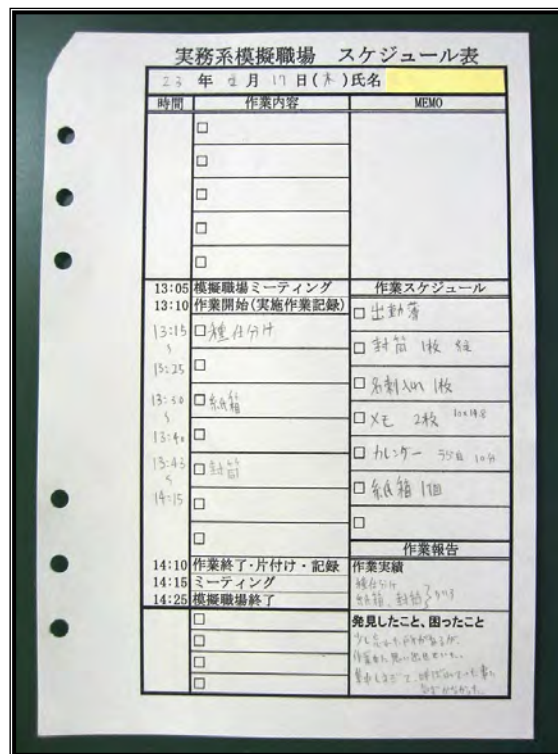 実務系模擬職場　スケジュール表
23 年 月 17 日(木)氏名
時間 作業内容 MEMO
□
□
□
□
□
13:05 模擬職場ミーティング 作業スケジュール
13:10 作業開始(実施作業記録)
□ 出勤簿
13:15 □ 種仕分け
□ 封筒 1枚
13:25 □
□ 名刺 1枚
13:30 □ 紙箱
□ メモ 2枚
13:40 □
□ カレンダー 10分
13:43 □ 封筒
□ 紙箱 1個
14:15 □
□
□
作業報告
14:10 作業終了・片付け・記録 作業実績
14:15 ミーティング 種仕分け
14:25 模擬職場終了 紙箱、封筒
□ 発見したこと、困ったこと
□
□
□